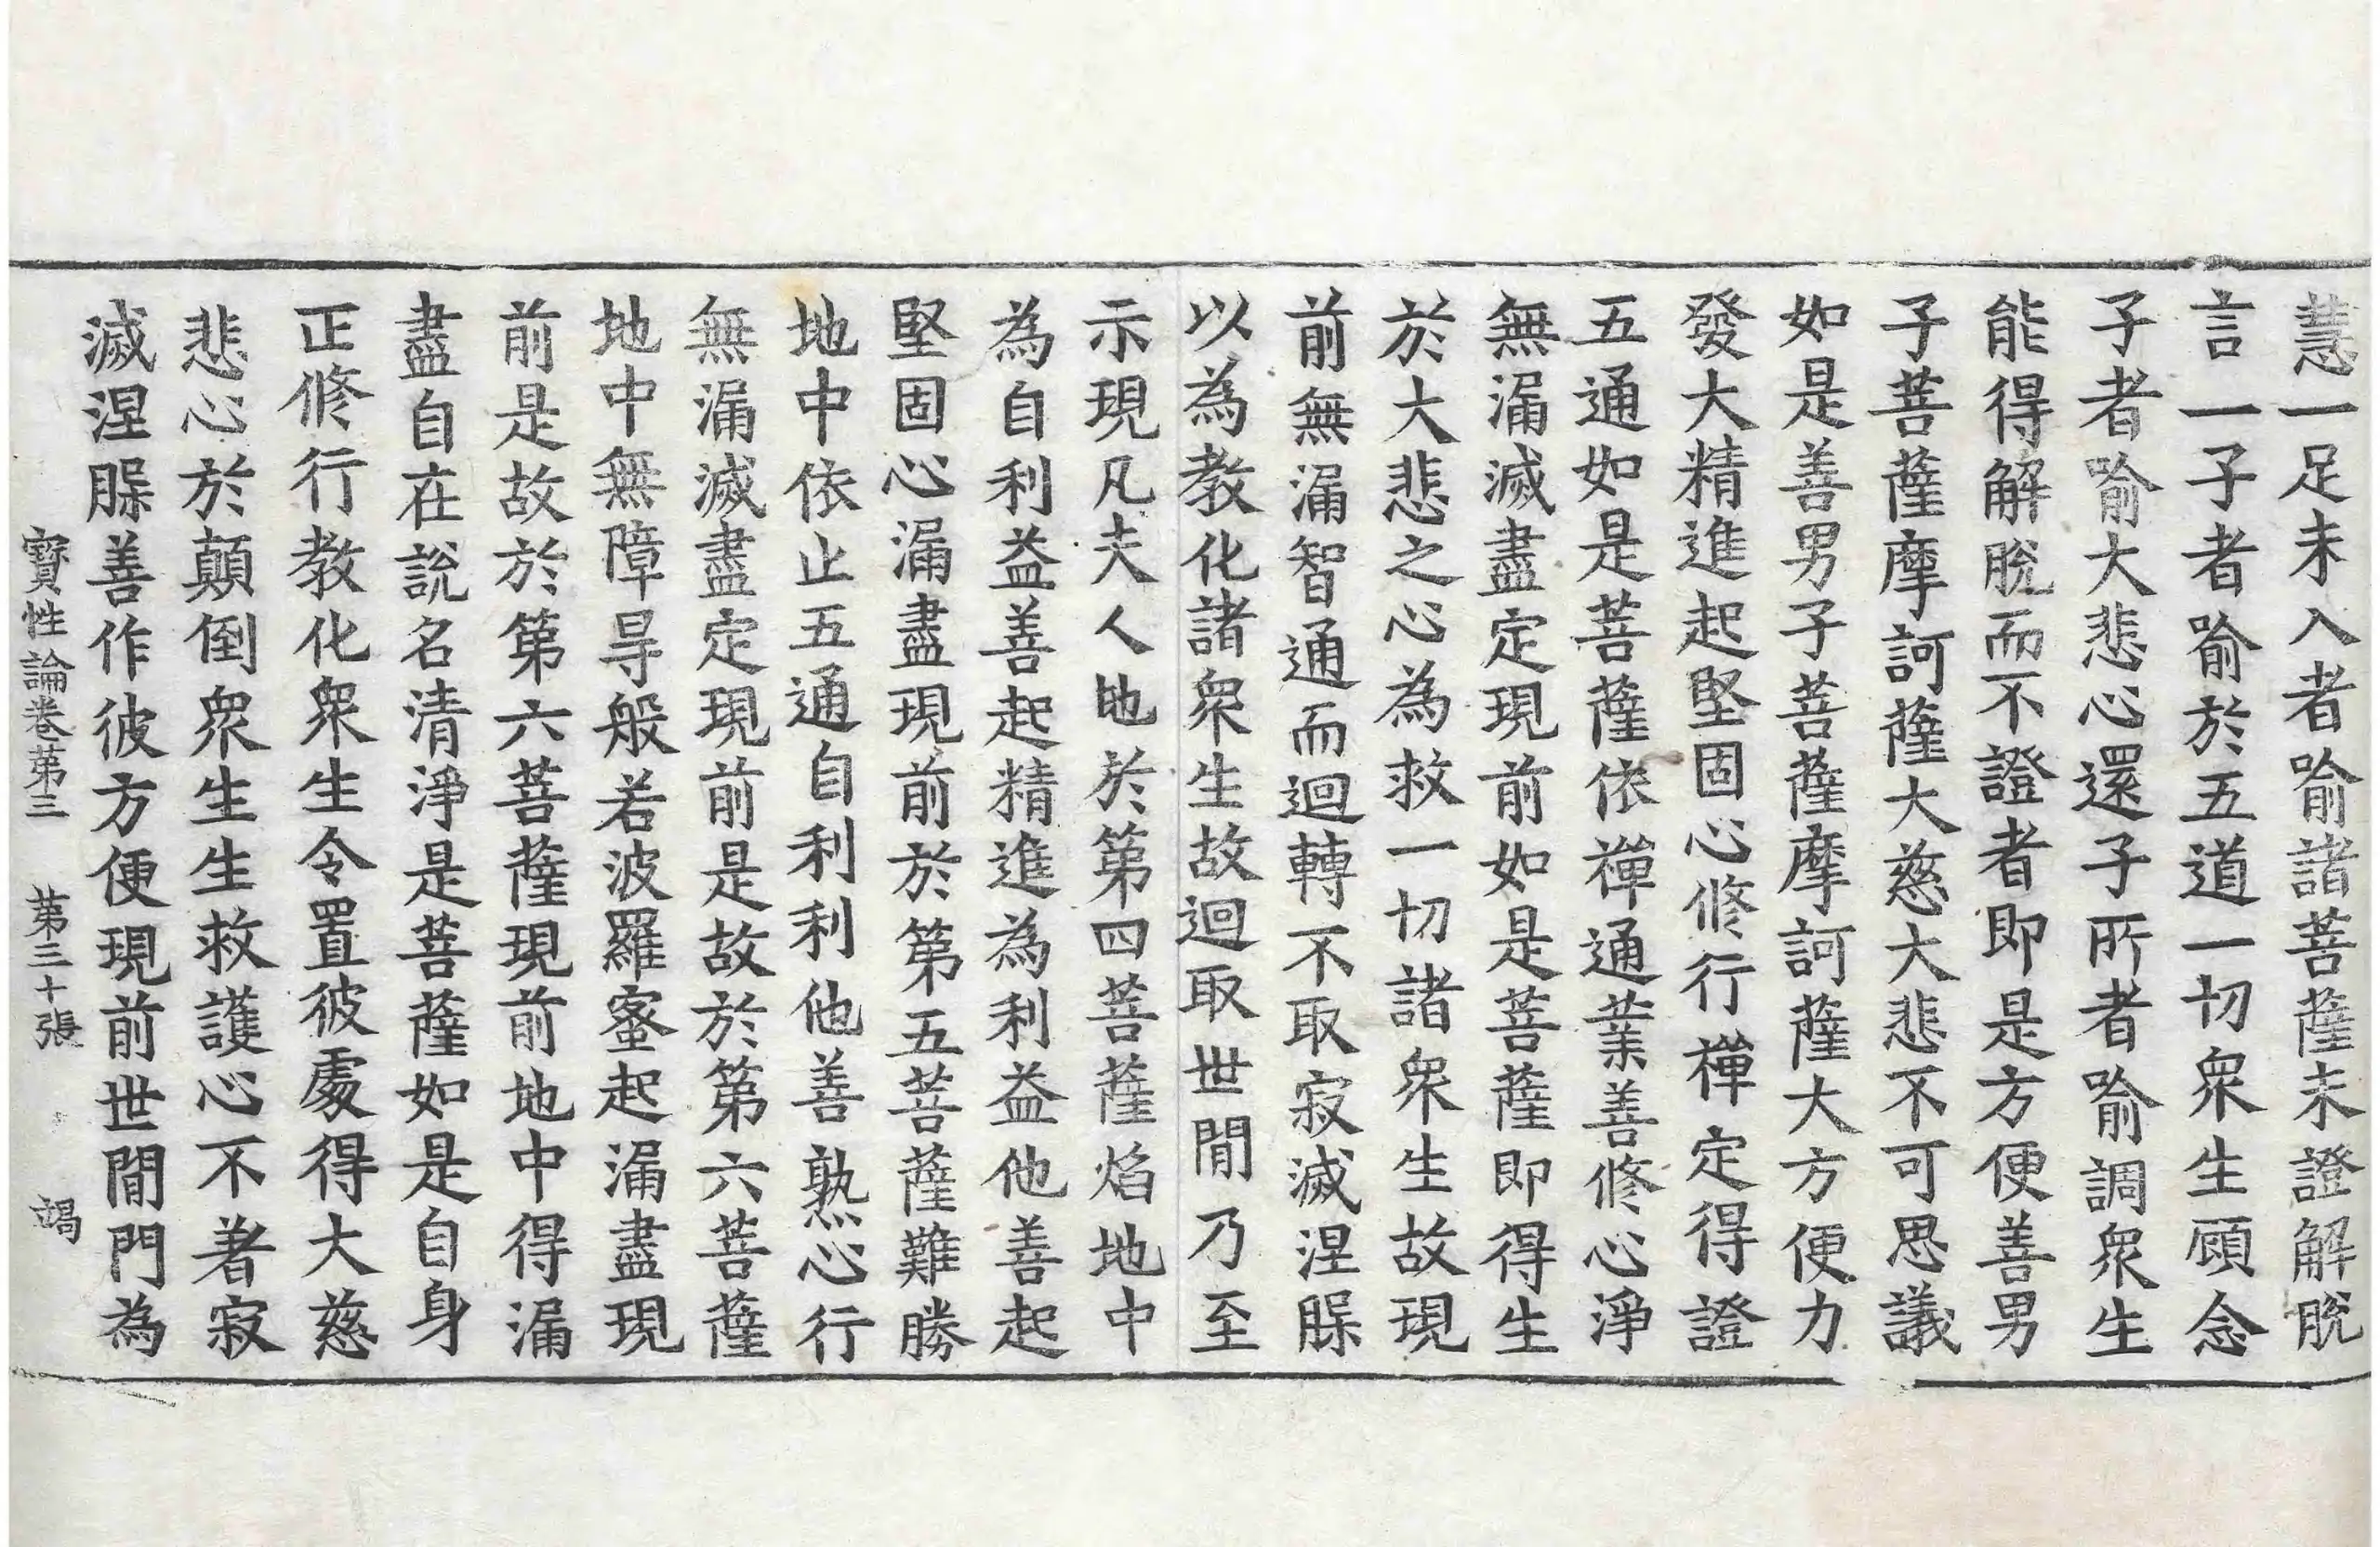 慧一足未入者喻諸菩薩未證解脫
言一子者喻於五道一切衆生顧念
子者喻大悲心還子所者喻調衆生
能得解脫而不證者即是方便善男
子菩薩摩訶薩大慈大悲不可思議
如是善男子菩薩摩訶薩大方便力
發大精進起堅固心修行禪定得證
五通如是菩薩依禪通業善修心淨
無漏滅盡定現前如是菩薩即得生
於大悲之心為救一切諸衆生故現
前無漏智通而迴轉不取寂滅涅槃
以為教化諸衆生故迴取世間乃至
示現凡夫人地於第四菩薩焰地中
為自利益善起精進為利益他善起
堅固心漏盡現前於第五菩薩難勝
地中依止五通自利利他善熟心行
無漏滅盡定現前是故於第六菩薩
地中無障㝵般若波羅蜜起漏盡現
前是故於第六菩薩現前地中得漏
盡自在說名清淨是菩薩如是自身
正修行教化衆生令置彼處得大慈
悲心於顛倒衆生生救護心不著寂
滅涅槃善作彼方便現前世間門為
寶性論卷第三 第三十張 竭